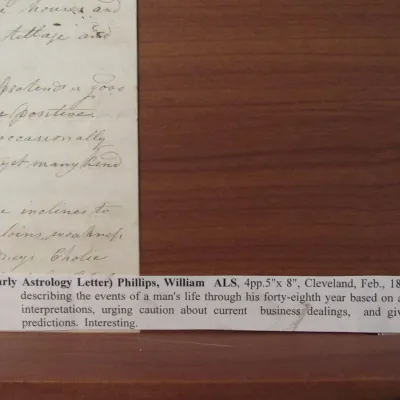 houses and
tillage and
pretends a good
positives
occasionally
yet many kind
inclines to
loins, weakness
Cholic
arly Astrology Letter) Phillips, William ALS, 4pp.5"x 8", Cleveland, Feb., 18
describing the events of a man's life through his forty-eighth year based on a
interpretations, urging caution about current business dealings, and giv
predictions. Interesting.